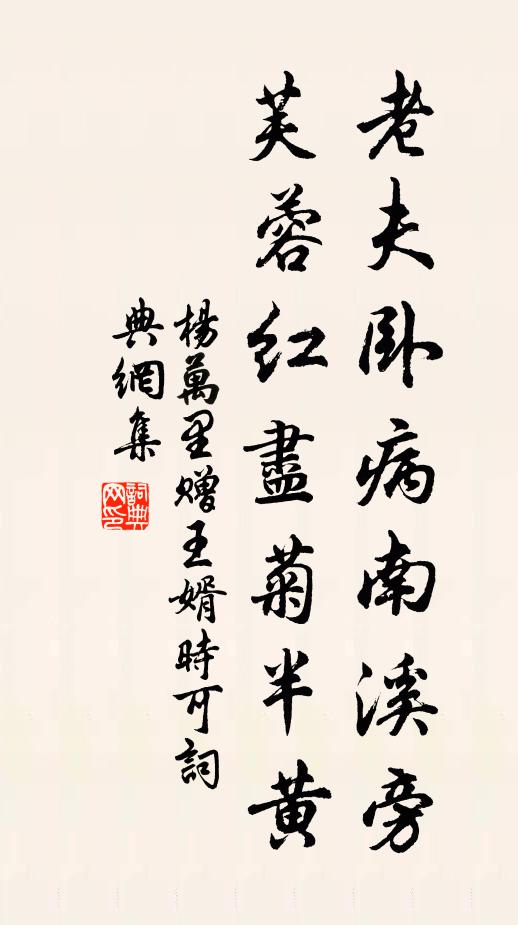 老夫卧病南溪旁
芙蓉紅盡菊半黄
楊萬里贈王婿時可詞
典網集
詞典网印